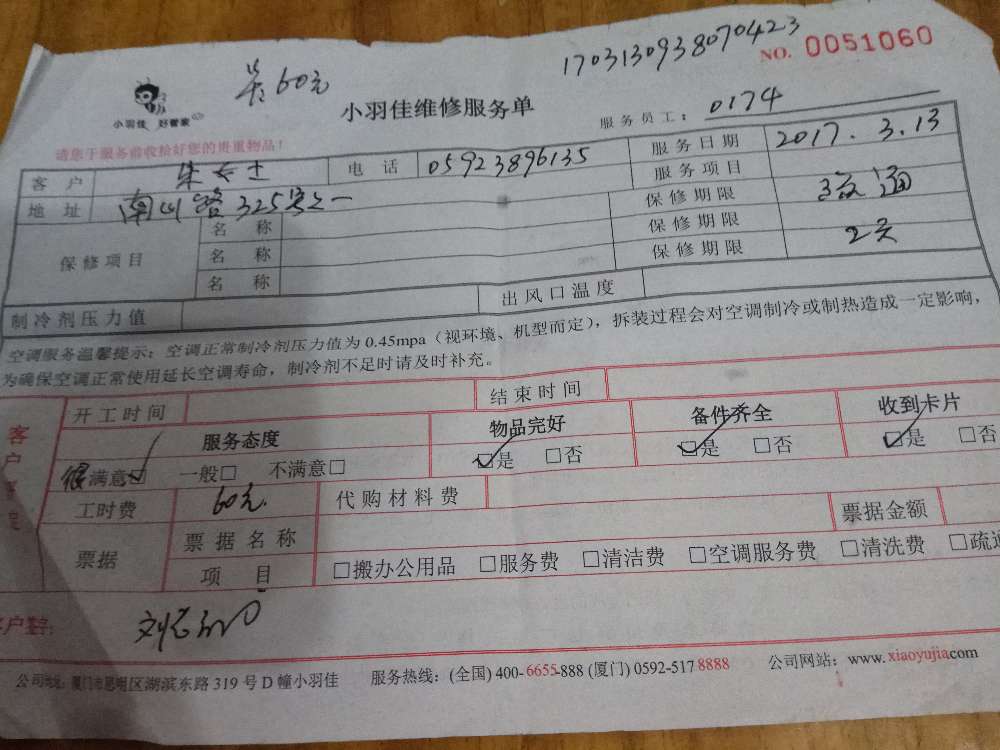 1703130938070423
NO. 0051060
60元
小羽佳 好管家
小羽佳维修服务单
服务员工: 0174
请您于服务前收拾好您的贵重物品!
客户 朱女士 电话 05923896135 服务日期 2017.3.13
地址 南山路325号之一 服务项目 疏通
保修项目 名称 保修期限 2天
名称 保修期限
名称 保修期限
制冷剂压力值 出风口温度
空调服务温馨提示: 空调正常制冷剂压力值为0.45mpa (视环境、机型而定), 拆装过程会对空调制冷或制热造成一定影响,
为确保空调正常使用延长空调寿命, 制冷剂不足时请及时补充。
开工时间 结束时间
服务态度 物品完好 备件齐全 收到卡片
很满意☑ 一般□ 不满意□ ☑是 □否 ☑是 □否 ☑是 □否
工时费 60元. 代购材料费
票据 票据名称 票据金额
项目 □搬办公用品 □服务费 □清洁费 □空调服务费 □清洗费 □疏通
客户签字:
公司地址: 厦门市思明区湖滨东路319号D幢小羽佳 服务热线: (全国) 400-6655-888 (厦门) 0592-5178888 公司网站: www.xiaoyujia.com